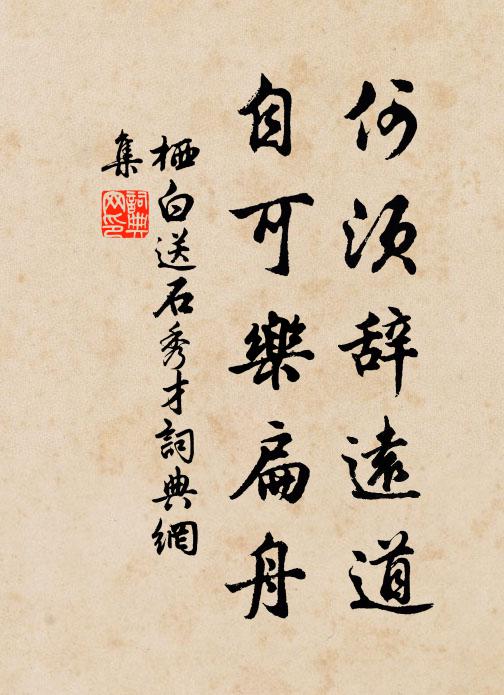 何須辭遠道
自可樂扁舟
栖白送石秀才詞典網
集
詞典
网印